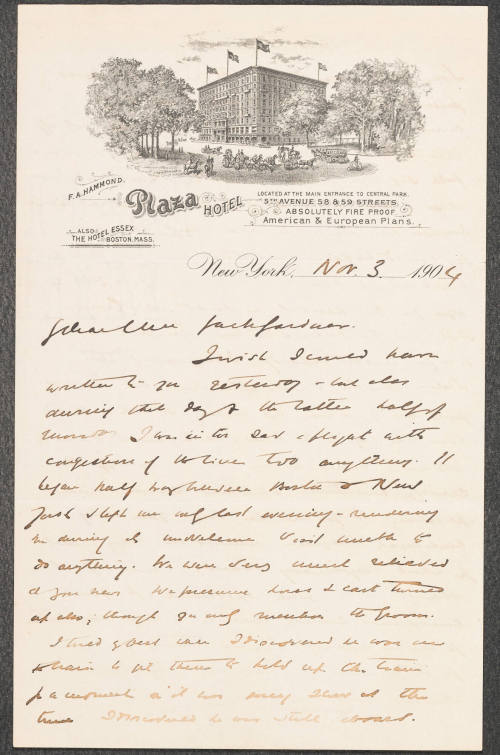 F. A. HAMMOND.
Plaza HOTEL
LOCATED AT THE MAIN ENTRANCE TO CENTRAL PARK.
5TH AVENUE 58 & 59 STREETS.
ABSOLUTELY FIRE PROOF
American & European Plans.
ALSO
THE HOTEL ESSEX
BOSTON, MASS.
New York, Nov. 3. 1904
Jack Gardner.
I wish I could have
written to you yesterday - but alas
during that day & the latter half of
I was in too sad a plight with
congestion of the liver too anything. It
began half way between Boston & New
York & left me only last evening - rendering
me during its unwelcome visit unable to
do anything. We were very much relieved
at your news. We presume horse & cart turned
up also, though you only mention the groom.
I tried my best when I discovered he was on
train to get them to hold up the train
for a moment as it was going slow at the
time I discovered he was still aboard.